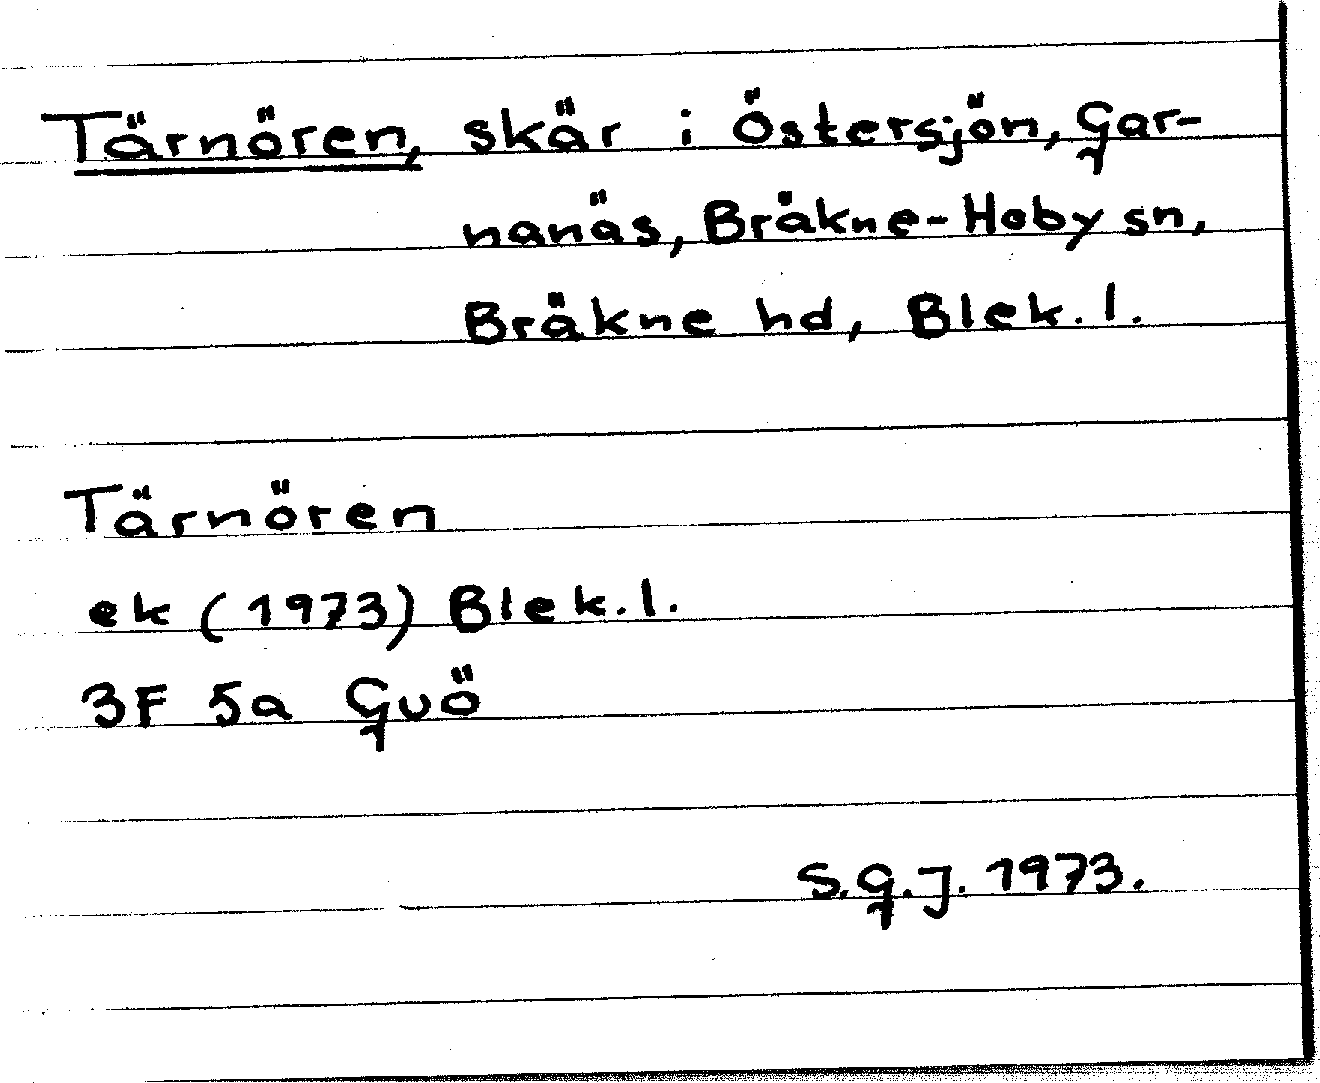 Tärnören, skär i Östersjön, Gar-
nanäs, Bräkne-Hoby sn,
Bräkne hd, Blek. l.
Tärnören
ek (1973) Blek. l.
3F 5a Guö
S.G.J. 1973.